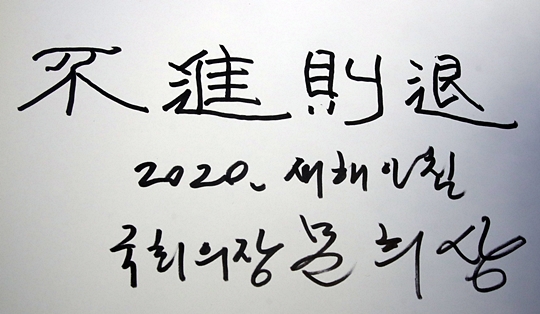 不進則退
2020. 새해 아침
국회의장 문희상